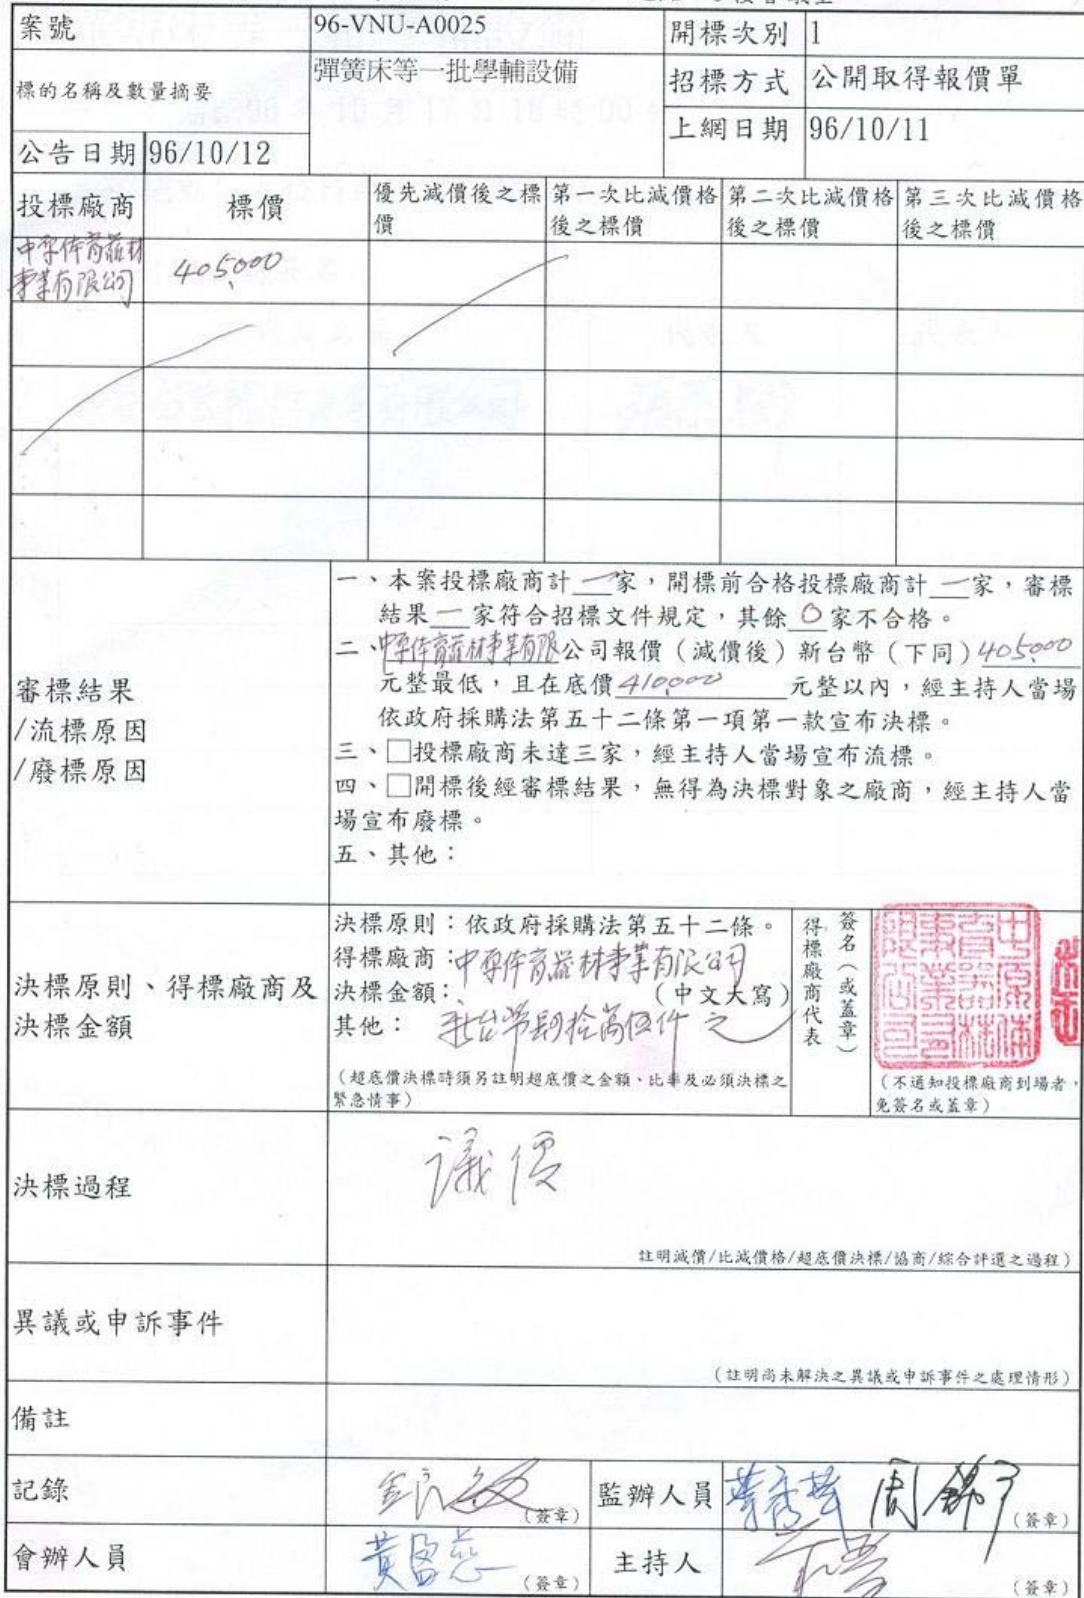 案號 96-VNU-A0025 開標次別 1
標的名稱及數量摘要 彈簧床等一批學輔設備 招標方式 公開取得報價單
公告日期 96/10/12 上網日期 96/10/11
投標廠商 標價 優先減價後之標價 第一次比減價格後之標價 第二次比減價格後之標價 第三次比減價格後之標價
中原体育器材
事業有限公司 405,000
審標結果
/流標原因
/廢標原因
一、本案投標廠商計一家，開標前合格投標廠商計一家，審標
結果一家符合招標文件規定，其餘0家不合格。
二、中原体育器材事業有限公司報價（減價後）新台幣（下同）405,000
元整最低，且在底價410,000元整以內，經主持人當場
依政府採購法第五十二條第一項第一款宣布決標。
三、□投標廠商未達三家，經主持人當場宣布流標。
四、□開標後經審標結果，無得為決標對象之廠商，經主持人當
場宣布廢標。
五、其他：
決標原則、得標廠商及
決標金額
決標原則：依政府採購法第五十二條。
得標廠商：中原体育器材事業有限公司
決標金額： （中文大寫）
其他： 新台幣肆拾萬伍仟元
（超底價決標時須另註明超底價之金額、比率及必須決標之
緊急情事）
得標廠商代表
簽名（或蓋章）
中原体育器材事業有限公司
（不通知投標廠商到場者，
免簽名或蓋章）
決標過程
議價
註明減價/比減價格/超底價決標/協商/綜合評選之過程）
異議或申訴事件
（註明尚未解決之異議或申訴事件之處理情形）
備註
記錄 （簽章） 監辦人員 （簽章）
會辦人員 黃盈慈 （簽章） 主持人 （簽章）